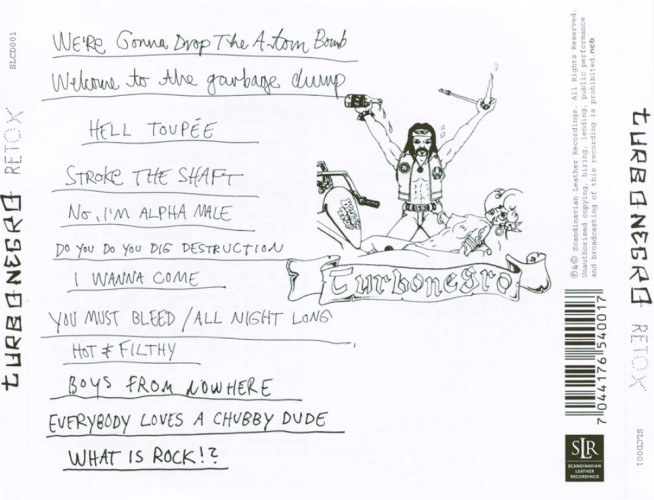 SLCD001
TURBONEGRO RETOX
We're Gonna Drop The A-tom Bomb
Welcome to the garbage dump
HELL TOUPÉE
STROKE THE SHAFT
No, I'M ALPHA MALE
DO YOU DO YOU DIG DESTRUCTION
I WANNA COME
YOU MUST BLEED / ALL NIGHT LONG
HOT & FILTHY
BOYS FROM NOWHERE
EVERYBODY LOVES A CHUBBY DUDE
WHAT IS ROCK!?
Turbonegro
℗&© Scandinavian Leather Recordings. All Rights Reserved.
Unauthorised copying, hiring, lending, public performance
and broadcasting of this recording is prohibited.ncb
7 044176 540017
SLR
SCANDINAVIAN
LEATHER
RECORDINGS
TURBONEGRO RETOX
SLCD001